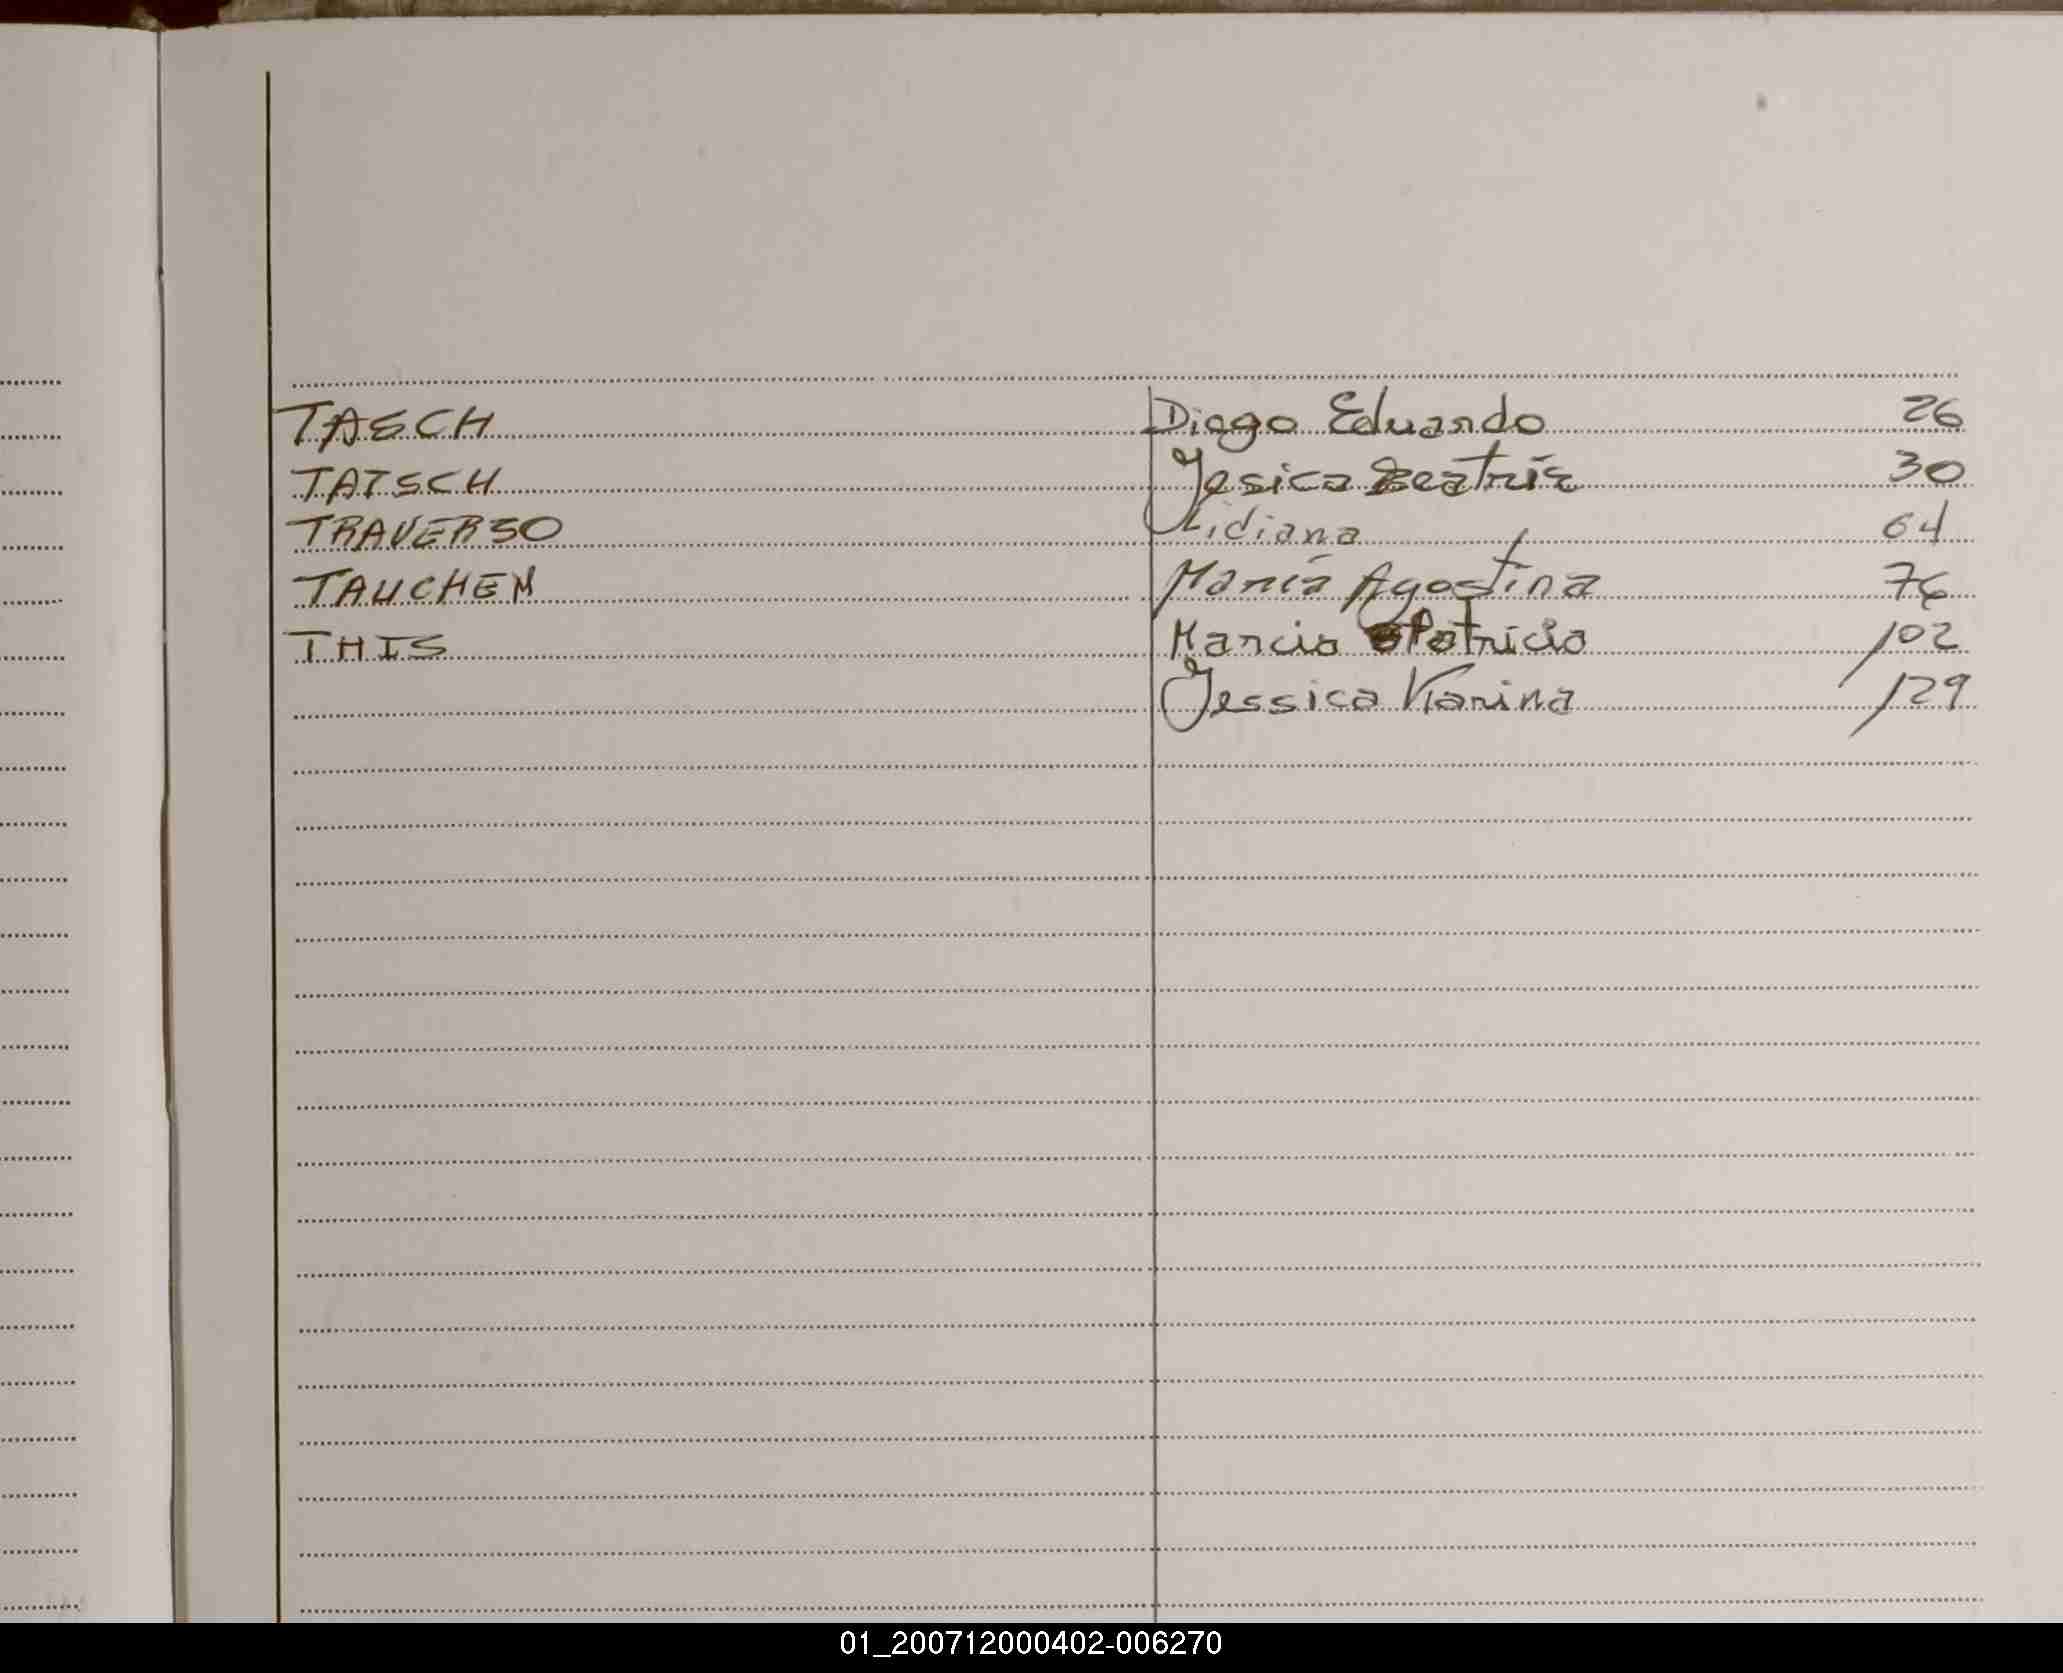 TASCH Diego Eduardo 26
TATSCH Jesica Beatriz 30
TRAVERSO Lidiana 64
TAUCHEN María Agostina 76
THIS Marcia Patricia 102
Jessica Karina 129
01_200712000402-006270